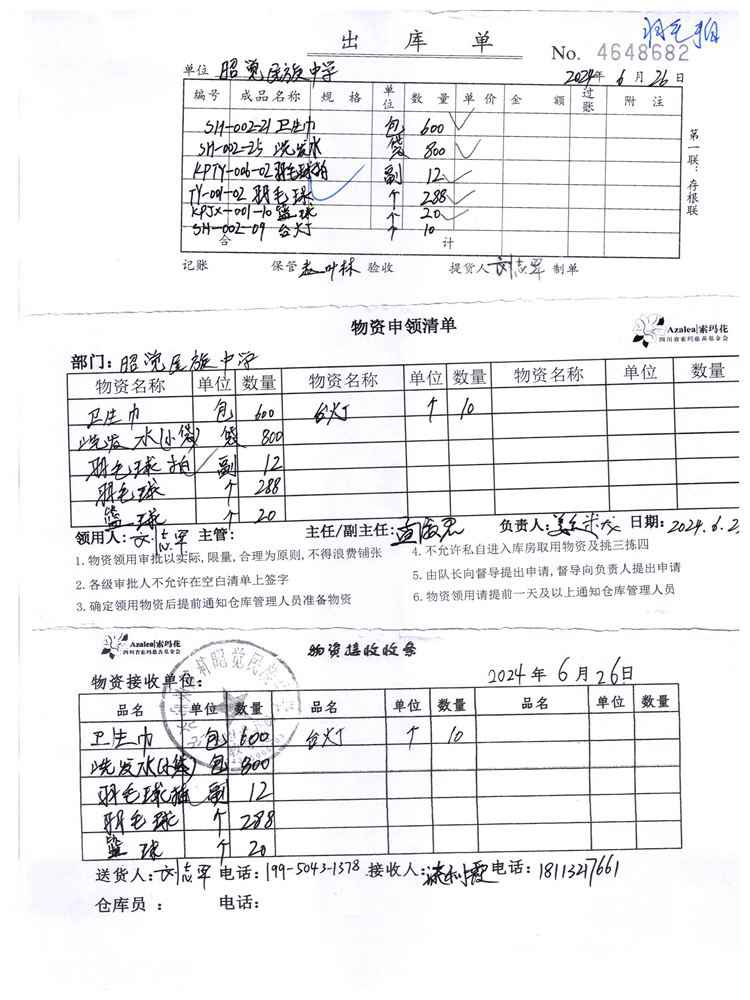 羽毛拍
出 库 单
No. 4648682
单位 昭觉民族中学 2024年 6月 26日
编号 成品名称 规格 单位 数量 单价 金额 过账 附注
SH-002-21 卫生巾 包 600
SH-002-25 洗发水 袋 800
KPTY-006-02 羽毛球拍 副 12
TY-001-02 羽毛球 个 288
KPJX-001-10 篮球 个 20
SH-002-09 台灯 个 10
合 计
第一联:存根联
记账 保管 验收 提货人 刘志军 制单
物资申领清单
Azalea|索玛花
四川省索玛慈善基金会
部门:昭觉民族中学
物资名称 单位 数量 物资名称 单位 数量 物资名称 单位 数量
卫生巾 包 600 台灯 个 10
洗发水(小袋) 袋 800
羽毛球拍 副 12
羽毛球 个 288
篮球 个 20
领用人:刘志军 主管: 主任/副主任: 负责人: 日期:2024.6.2
1.物资领用审批以实际,限量,合理为原则,不得浪费铺张
4.不允许私自进入库房取用物资及挑三拣四
2.各级审批人不允许在空白清单上签字
5.由队长向督导提出申请,督导向负责人提出申请
3.确定领用物资后提前通知仓库管理人员准备物资
6.物资领用请提前一天及以上通知仓库管理人员
Azalea|索玛花
四川省索玛慈善基金会
物资接收收条
物资接收单位: 2024年 6月 26日
品名 单位 数量 品名 单位 数量 品名 单位 数量
卫生巾 包 600 台灯 个 10
洗发水(小袋) 包 800
羽毛球拍 副 12
羽毛球 个 288
篮球 个 20
送货人:刘志军 电话:199-5043-1378 接收人: 电话:18113217661
仓库员: 电话: